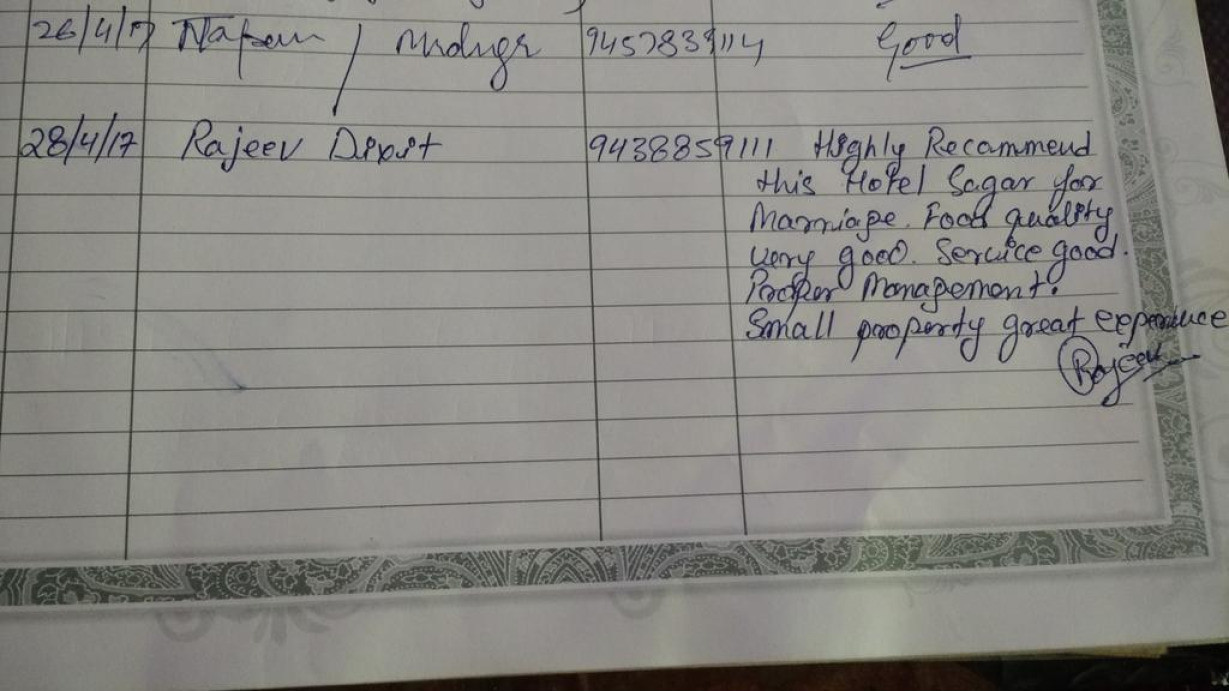 26/4/17 9457839114 Good
28/4/17 Rajeev Dixit 9438859111 Highly Recommend
this Hotel Sagar for
Marriage. Food quality
very good. Service good.
Proper Management.
Small property great experience
Rajeev